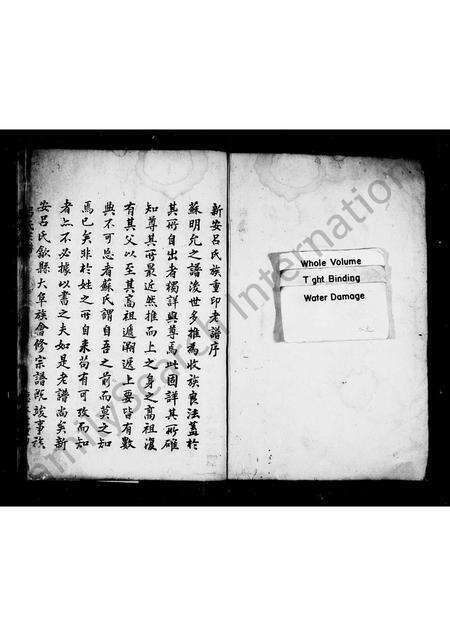 Whole Volume
Tight Binding
Water Damage
新安呂氏族重印老譜序
蘇明允之譜後世多推為收族良法蓋於
其所自出者獨詳與尊焉此固詳其所確
知尊其所最近然推而上之身之高祖復
有其父以至其高祖遞溯遞上要皆有數
典不可忘者蘇氏謂自吾之前而莫之知
焉已矣非於姓之所自來苟有可攷而知
者亦不必據以書之夫如是老譜尚矣新
安呂氏歙縣大阜族會修宗譜既竣事族
FamilySearch International